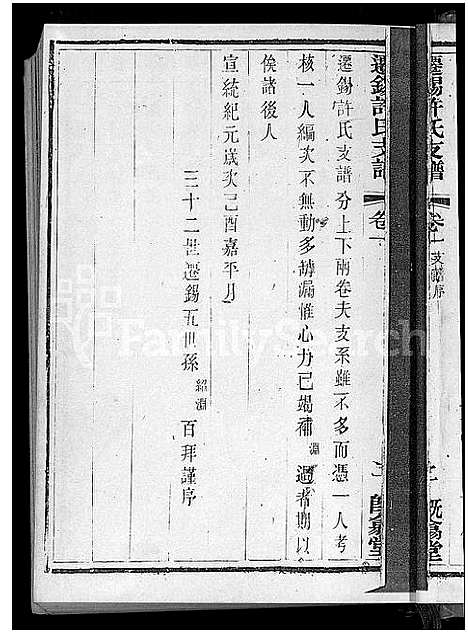 遷錫許氏支譜
卷一
支譜序
遷錫許氏支譜
卷一
遷錫許氏支譜分上下兩卷夫支系雖不多而憑一人考
核一人編次不無動多罅漏惟心力已竭補淵過者期以
俟諸後人
宣統紀元歲次己酉嘉平月
三十二世遷錫五世孫紹淵百拜謹序
FamilySearch